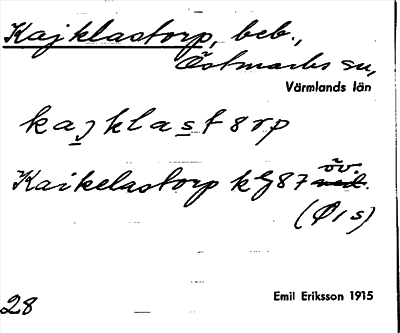 Kajklastorp, beb.,
Östmarks sn,
Värmlands län
kajklastorp
Kaikelastorp kg 87 öv.
(Ö1s)
Emil Eriksson 1915
28